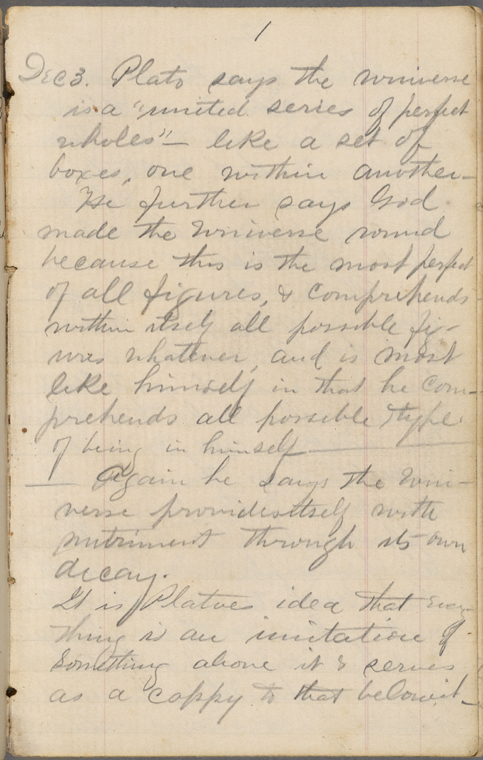 1
Dec 3. Plato says the universe
is a "united series of perfect
wholes" — like a set of
boxes, one within another —
He further says God
made the Universe round
because this is the most perfect
of all figures, & comprehends
within itself all possible fig-
ures whatever, and is most
like himself in that he com-
prehends all possible type
of being in himself —
— Again he says the Uni-
verse provides itself with
nutriment through its own
decay.
It is Platoes idea that every
thing is an imitation of
something above it & serves
as a coppy to that below it —